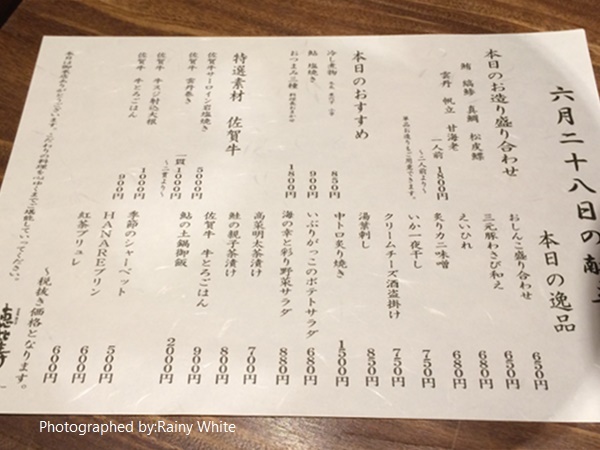 六月二十八日の献立
本日のお造り盛り合わせ
鮪 縞鯵 真鯛 松皮鰈
雲丹 帆立 甘海老
一人前 1800円
〜二人前より〜
単品お造りもご用意できます。
本日のおすすめ
冷し煮物 850円
鮎 塩焼き 900円
おつまみ三種 1800円
特選素材 佐賀牛
佐賀牛サーロイン岩塩焼き 5000円
佐賀牛 雲丹巻き 一貫1000円
〜二貫より〜
佐賀牛 牛スジ射込大根 1000円
佐賀牛 牛とろごはん 900円
本日の逸品
おしんこ盛り合わせ 650円
三元豚わさび和え 650円
えいひれ 680円
炙りカニ味噌 680円
いか一夜干し 750円
クリームチーズ酒盗掛け 750円
湯葉刺し 850円
中トロ炙り焼き 1500円
いぶりがっこのポテトサラダ 680円
海の幸と彩り野菜サラダ 880円
高菜明太茶漬け 700円
鮭の親子茶漬け 800円
佐賀牛 牛とろごはん 900円
鮎の土鍋御飯 2000円
季節のシャーベット 500円
HANAREプリン 600円
紅茶ブリュレ 600円
〜税抜き価格となります。
Photographed by:Rainy White